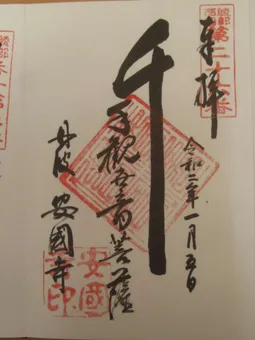 綾部
西国
第二十七番
奉拝
令和二年一月五日
千手観世音菩薩
丹波 安國寺
安國
寺印